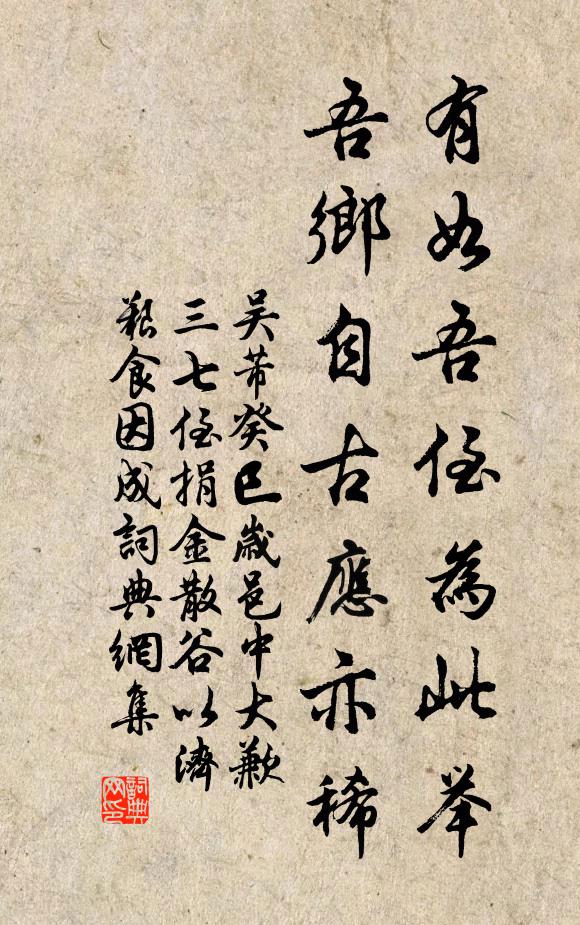 有如吾侄為此举
吾鄉自古應亦稀
吴芾癸巳歲邑中大歉
三七侄捐金散谷以濟
艱食因成詞典網集
詞典网印